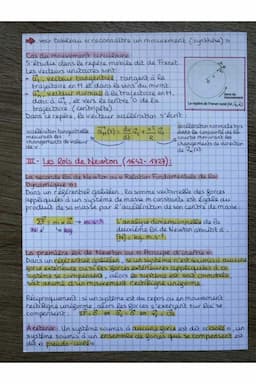 voir tableau « reconnaître un mouvement (synthèse) »
Cas du mouvement circulaire
S'étudie dans le repère mobile dit de Frenet.
Les vecteurs unitaires sont :
vecteur tangentiel, tangent à la
trajectoire en M et dans le sens du mvmt
vecteur normal à la trajectoire en M,
et vers le centre O de la
trajectoire (centripète)
Dans ce repère, le vecteur accélération s'écrit
accélération tangentielle
mesurant des
changements de valeur
de v
accélération normale
changements de direction
III - Les lois de Newton (1642-1727) :
La seconde loi de Newton ou « Relation Fondamentale de la
Dynamique »
Dans un référentiel galiléen, la somme vectorielle des forces
appliquées à un système de masse m constante est égale au
produit de sa masse par l'accélération de son centre de masse.
L'analyse dimensionnelle de la
deuxième loi de Newton conduit à
[N] = kg.m.s⁻²
La première loi de Newton ou « Principe d'inertie »
Dans un référentiel galiléen, si un système n'est soumis à aucune
force extérieure ou si les forces extérieures appliquées à ce
système se compensent, alors le système est soit immobile,
soit animé d'un mouvement rectiligne uniforme.
Réciproquement : si un système est au repos ou en mouvement
rectiligne uniforme, alors les forces s'exerçant sur lui se
compensent :
Un système soumis à aucune force est dit « isolé », un
système soumis à un ensemble de forces qui se compensent est
dit « pseudo-isolé ».